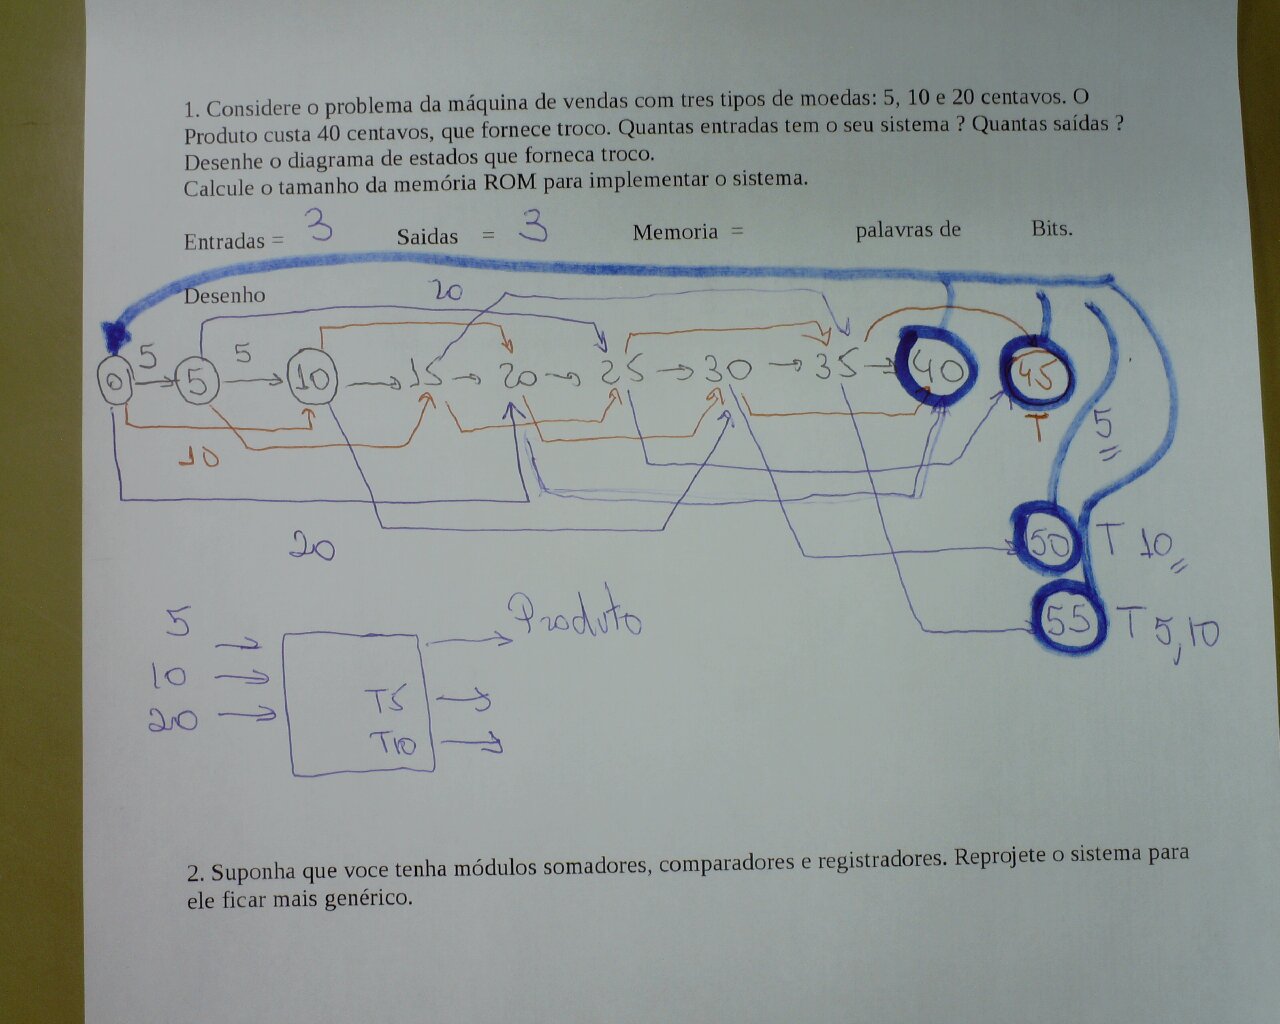 1. Considere o problema da máquina de vendas com tres tipos de moedas: 5, 10 e 20 centavos. O
Produto custa 40 centavos, que fornece troco. Quantas entradas tem o seu sistema ? Quantas saídas ?
Desenhe o diagrama de estados que forneca troco.
Calcule o tamanho da memória ROM para implementar o sistema.
Entradas = 3 Saidas = 3 Memoria = palavras de Bits.
Desenho 20
5 5
0 5 10 15 20 25 30 35 40 45
T
5
10
20
50 T 10
55 T 5,10
5 Produto
10
T5
20
T10
2. Suponha que voce tenha módulos somadores, comparadores e registradores. Reprojete o sistema para
ele ficar mais genérico.